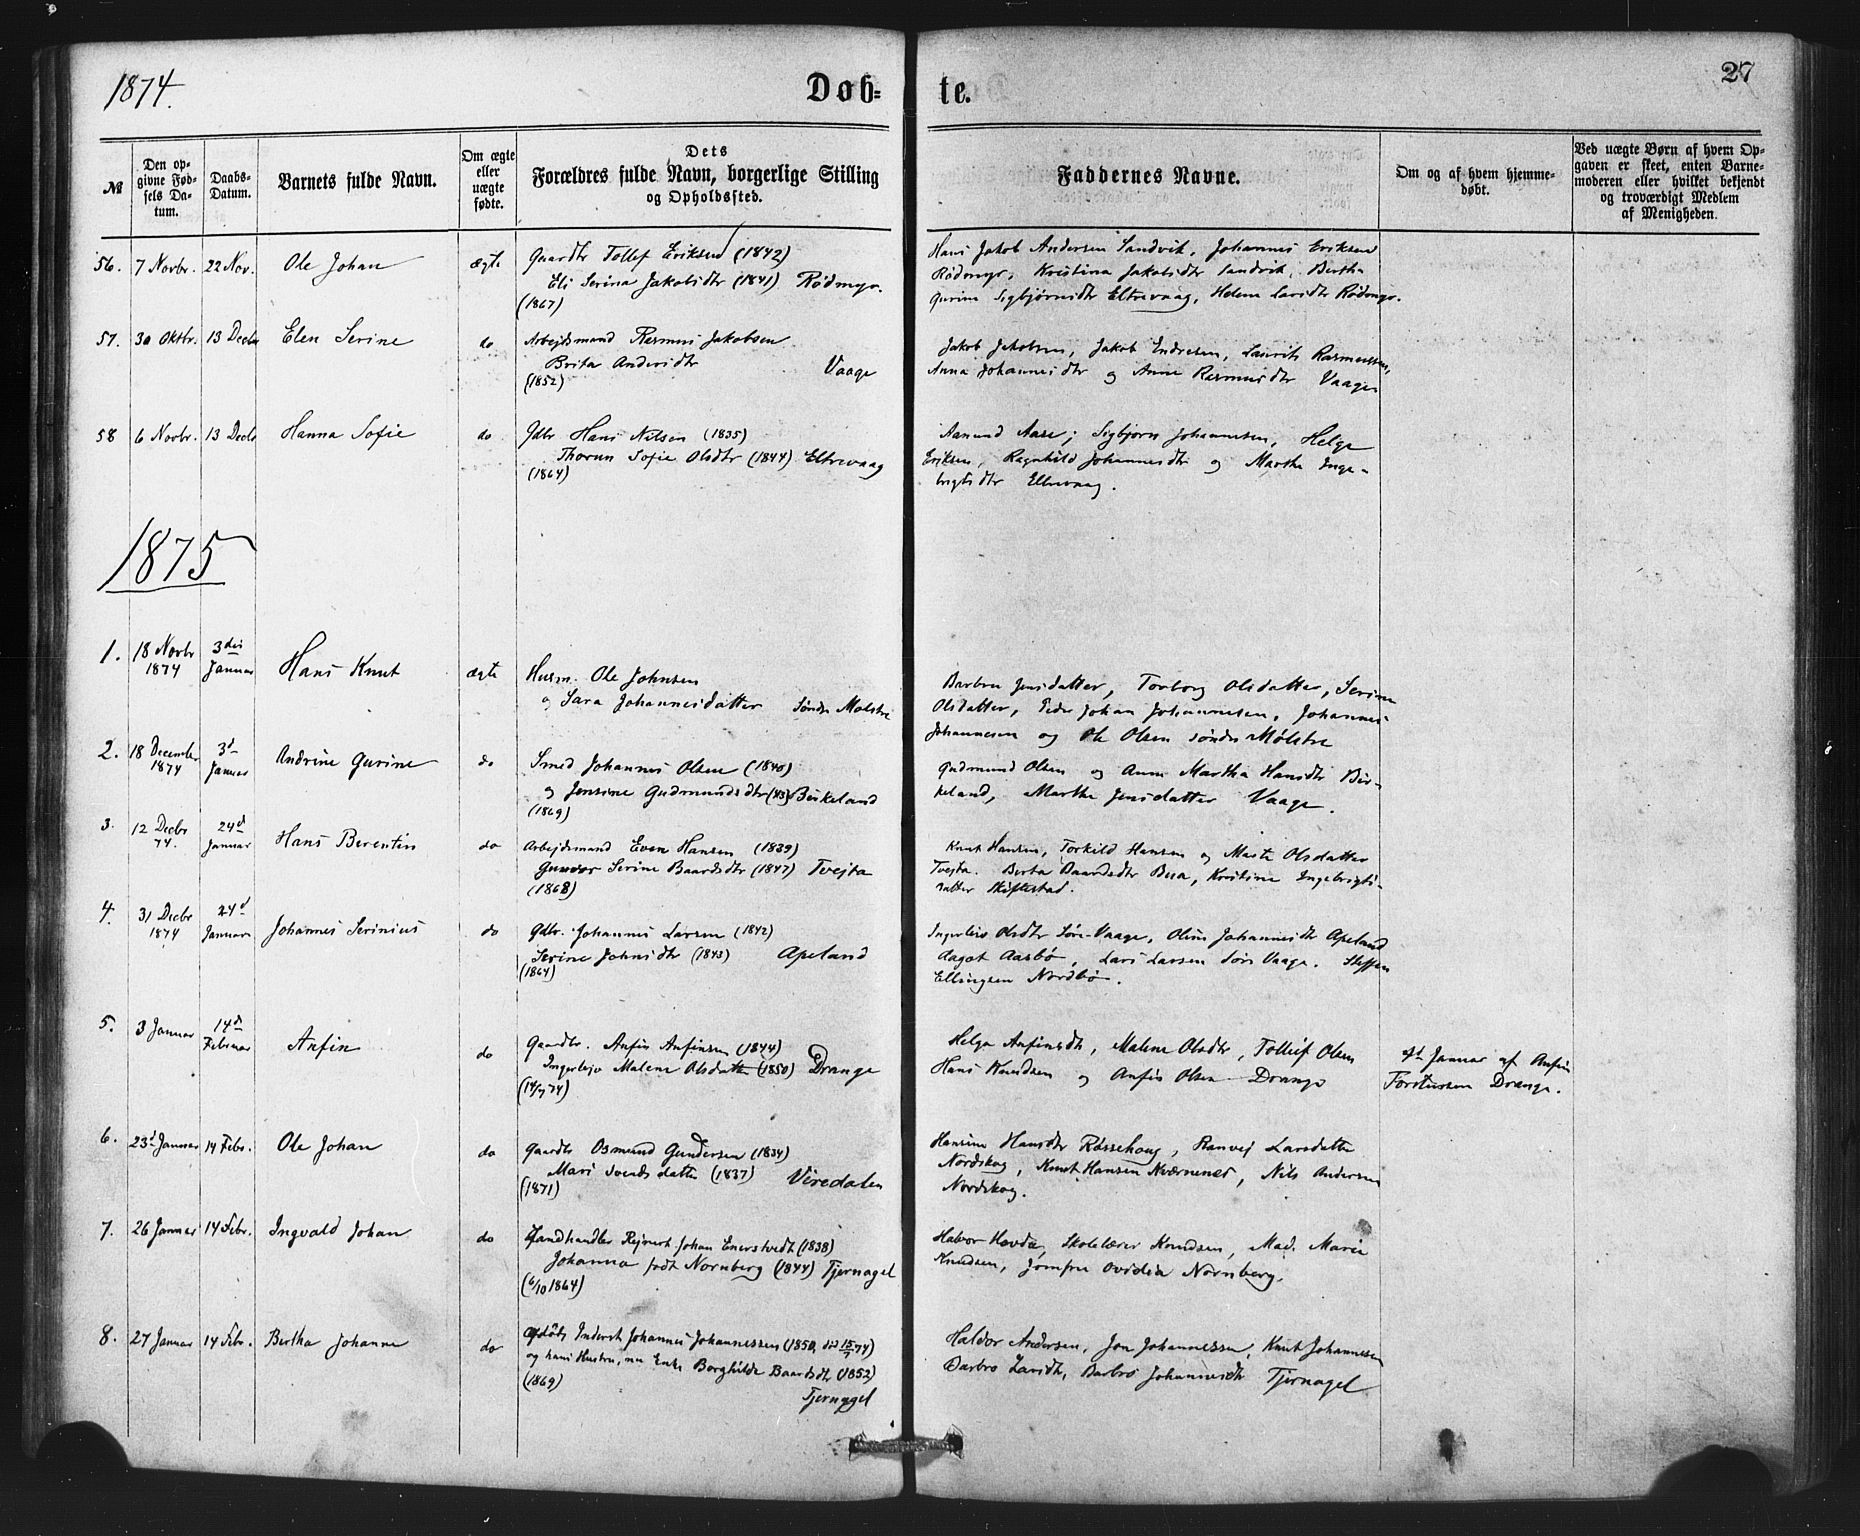 1874.
Døb-
te.
27
№
Den op-
givne Fød-
sels Da-
tum.
Daabs-
Datum.
Barnets fulde Navn.
Om ægte
eller
uægte
fødte.
Dets
Forældres fulde Navn, borgerlige Stilling
og Opholdssted.
Faddernes Navne.
Om og af hvem hjemme-
døbt.
Ved uægte Børn af hvem Op-
gaven er skeet, enten Barne-
moderen eller hvilket bekjendt
og troværdigt Medlem
af Menigheden.
56. 7 Novbr. 22 Nov. Ole Johan ægte
Gaardbr Tollef Eriksen (1842)
Eli Serina Jakobsdtr (1841) Rødmyr.
(1867)
Hans Jakob Andersen Sandvik, Johannes Eriksen
Rødmyr, Kristina Jakobsdtr Sandvik, Bertha
Gurine Sigbjørnsdtr Eltrevaag, Helene Larsdtr Rødmyr.
57. 30 Oktbr. 13 Decbr Elen Serine do
Arbejdsmand Rasmus Jakobsen
Brita Andersdtr Vaage
(1852)
Jakob Jakobsen, Jakob Endresen, Laurits Rasmussen,
Anna Johannesdtr og Anne Rasmusdtr Vaage
58 6 Novbr. 13 Decbr Hanna Sofie do
Gdbr Hans Nilsen (1835)
Thorun Sofie Olsdtr (1844) Eltrevaag
(1864)
Aamund Aase, Sigbjørn Johannesen, Helge
Eriksen, Ragnhild Johannesdtr og Martha Inge-
brigtsdtr Eltrevaag.
1875
1. 18 Novbr 1874 3die Januar Hans Knut ægte
Husm. Ole Johnsen
og Sara Johannesdatter Søndre Molstre
Barbru Jensdatter, Torborg Olsdatter, Serine
Olsdatter, Peder Johan Johannesen, Johannes
Johannesen og Ole Olsen søndre Mølstre
2. 18 December 1874 3d Januar Andrine Gurine do
Smed Johannes Olsen (1840)
og Jensine Gudmundsdtr (43) Birkeland
(1869)
Gudmund Olsen og Anna Martha Hansdtr Bir-
keland, Marthe Jensdatter Vaage.
3. 12 Decbr 74. 24d Januar Hans Berentin do
Arbejdsmand Even Hansen (1839)
Gunvor Serine Baardsdtr (1847) Tvejta
(1868)
Knut Hansen, Torkild Hansen og Marte Olsdatter
Tvejta. Berta Baardsdtr Bua, Kristine Ingebrigts-
datter Skiftestad.
4. 31 Decbr 1874 24d Januar Johannes Serinius do
Gdbr. Johannes Larsen (1842)
Serine Johnsdtr (1843) Apeland
(1864)
Ingerleiv Olsdtr Søre-Vaage, Oline Johannesdtr Apeland
Aagot Aasbø, Lars Larsen Søre Vaage. Steffen
Ellingsen Nordbø.
5. 3 Januar 14de Februar Anfin do
Gaardbr. Anfin Anfinsen (1844)
Ingerleiv Malene Olsdatter (1850) Drange
(14/7 74)
Helga Anfinsdtr, Malene Olsdtr, Tollef Olsen
Hans Knudsen og Anfin Olsen Drange
Januar af Anfin
Torstensen Drange.
6. 23d Januar 14 Febr. Ole Johan do
Gaardbr Osmund Gundersen (1834)
Mari Svends datter (1837) Viredalen
(1871)
Hansine Hansdtr Røssehaug, Ranvej Larsdatter
Nordskog, Knut Hansen Kværnenes, Nils Andersen
Nordskog.
7. 26 Januar 14 Febr. Ingvald Johan do
Landhandler Rejnert Johan Enerstvedt (1838)
Johanna født Nornberg (1844) Tjernagel
(6/10 1864)
Halvor Hovda, Skolelærer Knudsen, Mad. Marie
Knudsen, Jomfru Ovidia Nornberg.
8. 27 Januar 14 Febr. Bertha Johanne do
Afdøde Inderst Johannes Johannessen (1850, død 15/7 74)
og hans Hustru, nu Enke Borghilde Baardsdtr (1852)
(1869)
Tjernagel
Haldor Andersen, Jon Johannessen, Knut Johannesen
Barbro Larsdtr, Barbro Johannesdtr Tjernagel